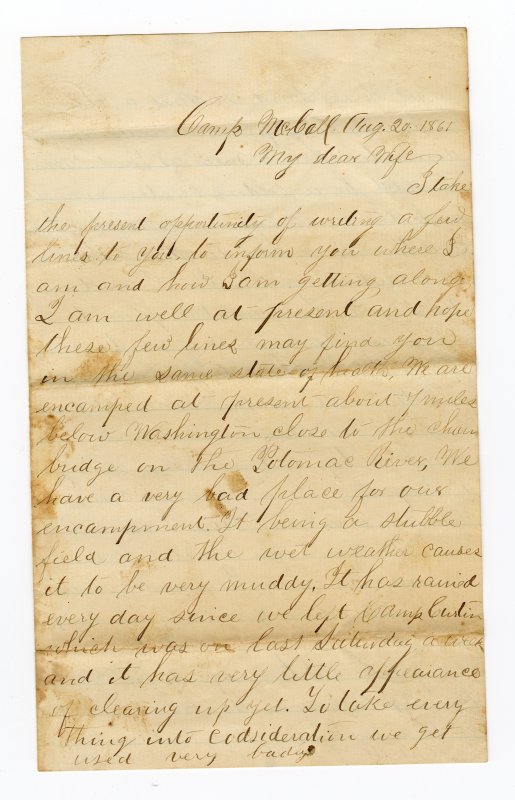 Camp McCall Aug. 20. 1861
My dear Wife
I take
the present opportunity of writing a few
lines to you, to inform you where I
am and how I am getting along.
I am well at present and hope
these few lines may find you
in the same state of health, We are
encamped at present about 7 miles
below Washington close to the chain
bridge on the Potomac River, We
have a very bad place for our
encampment. It being a stubble
field and the wet weather causes
it to be very muddy. It has rained
every day since we left Camp Curtin
which was on last Saturday a week
and it has very little appearance
of clearing up yet. To take every
thing into codsideration we get
used very badly